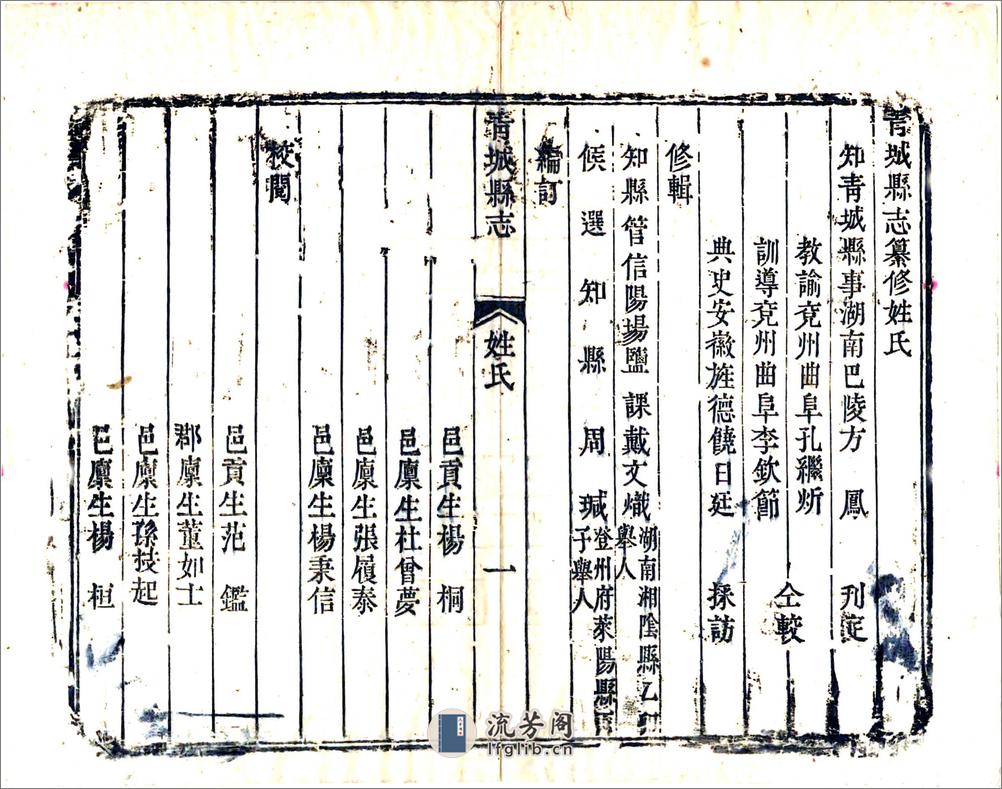 青城縣志纂修姓氏
知青城縣事湖南巴陵方鳳 刋定
教諭兗州曲阜孔繼炘 仝較
訓導兗州曲阜李欽節
典史安徽旌德饒日廷 採訪
修輯
知縣管信陽場鹽課戴文熾 湖南湘陰縣乙卯
舉人
候選知縣周珹 登州府萊陽縣
子舉人
編訂
青城縣志 姓氏 一
邑貢生楊桐
邑廩生杜曾夢
邑廩生張履泰
邑廩生楊秉信
校閱
邑貢生范鑑
郡廩生董如士
邑廩生孫技起
邑廩生楊桓
流芳阁
lfglib.cn